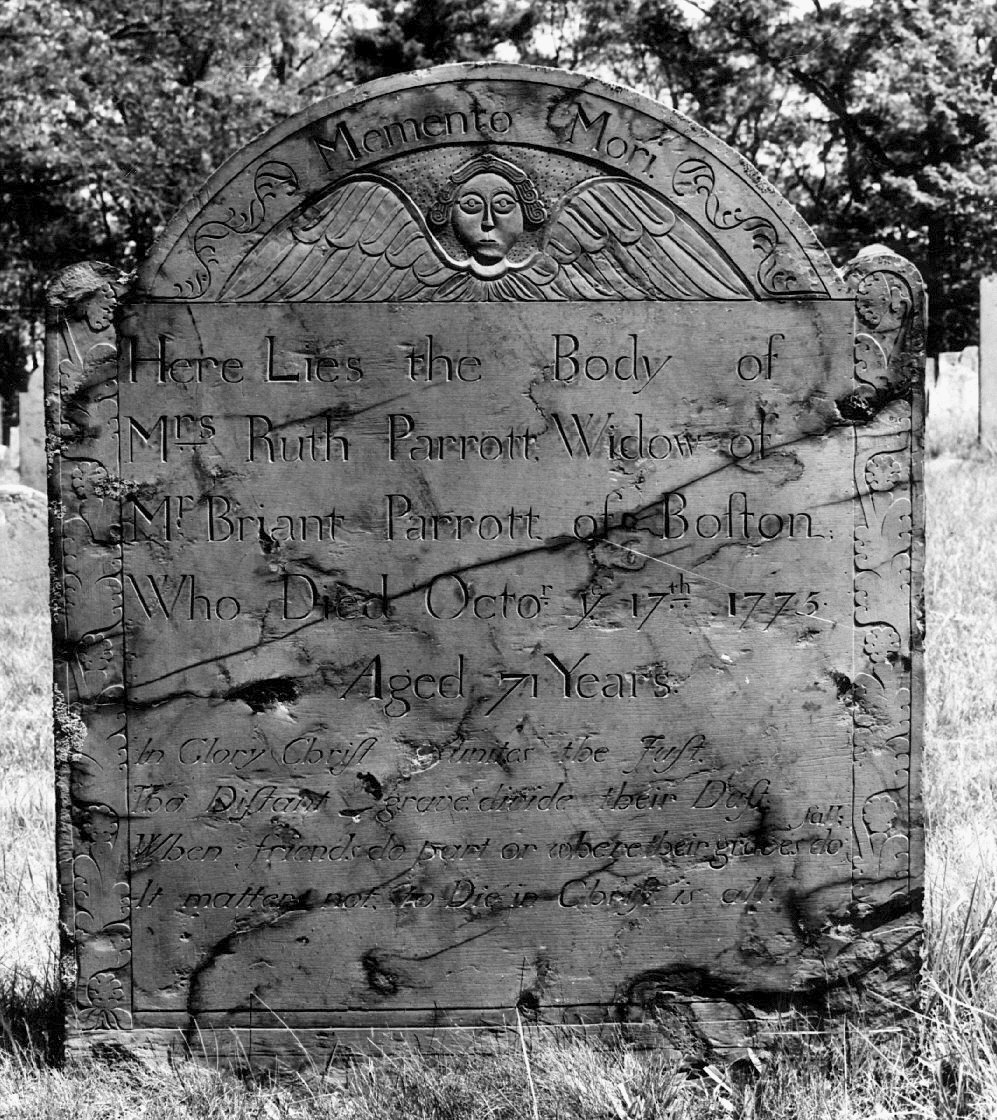 Memento Mori.
Here Lies the Body of
Mrs Ruth Parrott, Widow of
Mr Briant Parrott of Boſton,
Who Died Octor ye 17th 1775.
Aged 71 Years.
In Glory Chriſt unites the Juſt.
Tho' Diſtant grave divide their Duſt
When friends do part or where their graves do fall;
It matters not, to Die in Chriſt is all.